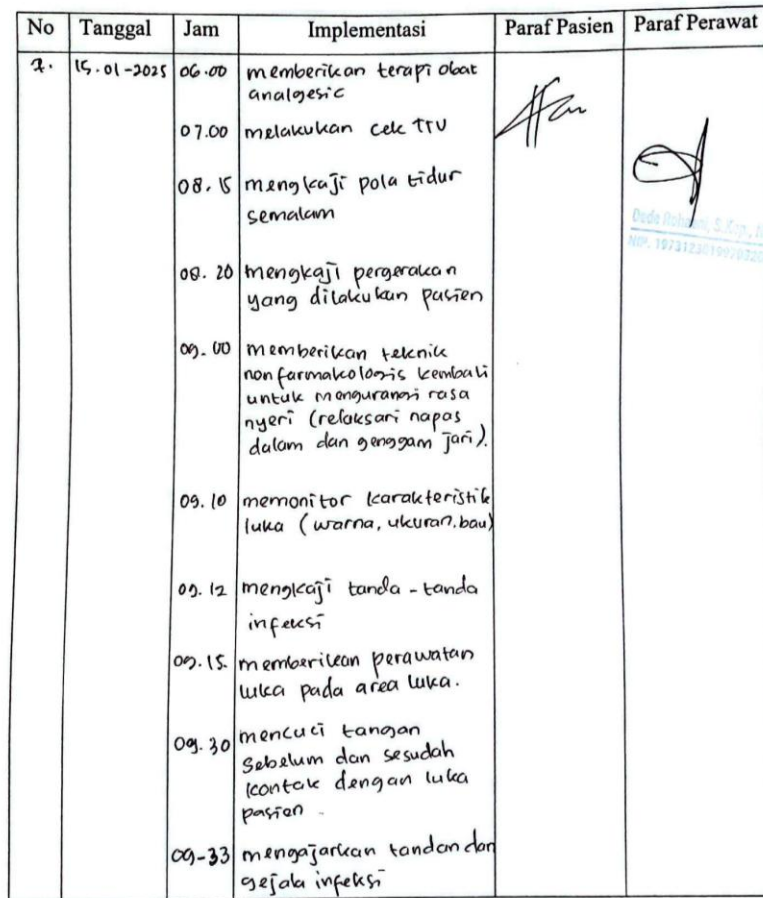 No Tanggal Jam Implementasi Paraf Pasien Paraf Perawat
7. 15.01-2025 06.00 memberikan terapi obat
analgesic
07.00 melakukan cek TTV
08.15 mengkaji pola tidur
semalam
08.20 mengkaji pergerakan
yang dilakukan pasien
09.00 memberikan teknik
nonfarmakologis kembali
untuk mengurangi rasa
nyeri (relaksasi napas
dalam dan genggam jari).
09.10 memonitor karakteristik
luka (warna, ukuran, bau)
09.12 mengkaji tanda-tanda
infeksi
09.15. memberikan perawatan
luka pada area luka.
09.30 mencuci tangan
sebelum dan sesudah
kontak dengan luka
pasien.
09-33 mengajarkan tandan dan
gejala infeksi